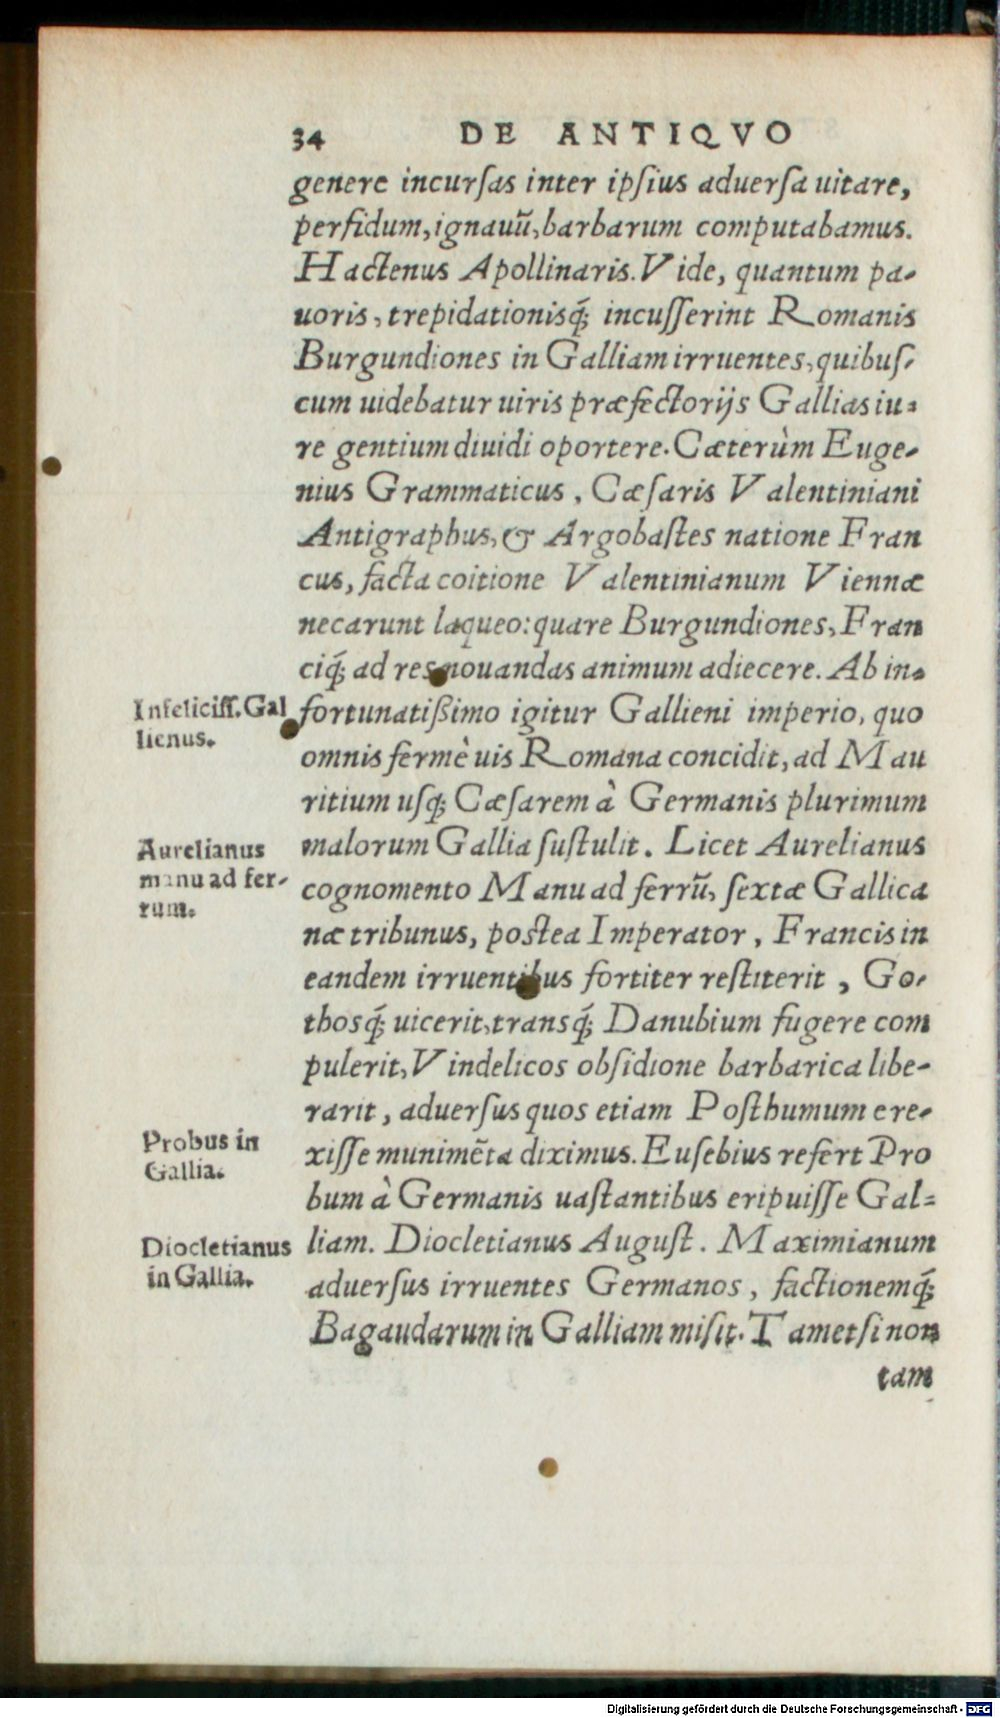 34 DE ANTIQVO
genere incurſas inter ipſius aduerſa uitare,
perfidum, ignauū, barbarum computabamus.
Hactenus Apollinaris. Vide, quantum pa-
uoris, trepidationisq́; incuſſerint Romanis
Burgundiones in Galliam irruentes, quibuſ-
cum uidebatur uiris præfectorijs Gallias iu-
re gentium diuidi oportere. Cæterùm Euge-
nius Grammaticus, Cæſaris Valentiniani
Antigraphus, & Argobaſtes natione Fran
cus, facta coitione Valentinianum Viennæ
necarunt laqueo: quare Burgundiones, Fran
ciq́; ad res nouandas animum adiecere. Ab in-
Infeliciſſ. Gal
lienus.
fortunatißimo igitur Gallieni imperio, quo
omnis fermè uis Romana concidit, ad Mau
ritium uſq; Cæſarem à Germanis plurimum
malorum Gallia ſuſtulit. Licet Aurelianus
Aurelianus
manu ad fer-
rum.
cognomento Manu ad ferrū, ſextæ Gallica
næ tribunus, poſtea Imperator, Francis in
eandem irruentibus fortiter reſtiterit, Go-
thosq́; uicerit, transq́; Danubium fugere com
pulerit, Vindelicos obſidione barbarica libe-
rarit, aduerſus quos etiam Poſthumum ere-
Probus in
Gallia.
xiſſe munimēta diximus. Euſebius refert Pro
bum à Germanis uaſtantibus eripuiſſe Gal-
Diocletianus
in Gallia.
liam. Diocletianus Auguſt. Maximianum
aduerſus irruentes Germanos, factionemq́;
Bagaudarum in Galliam miſit. Tametſi non
tam
Digitalisierung gefördert durch die Deutsche Forschungsgemeinschaft - DFG